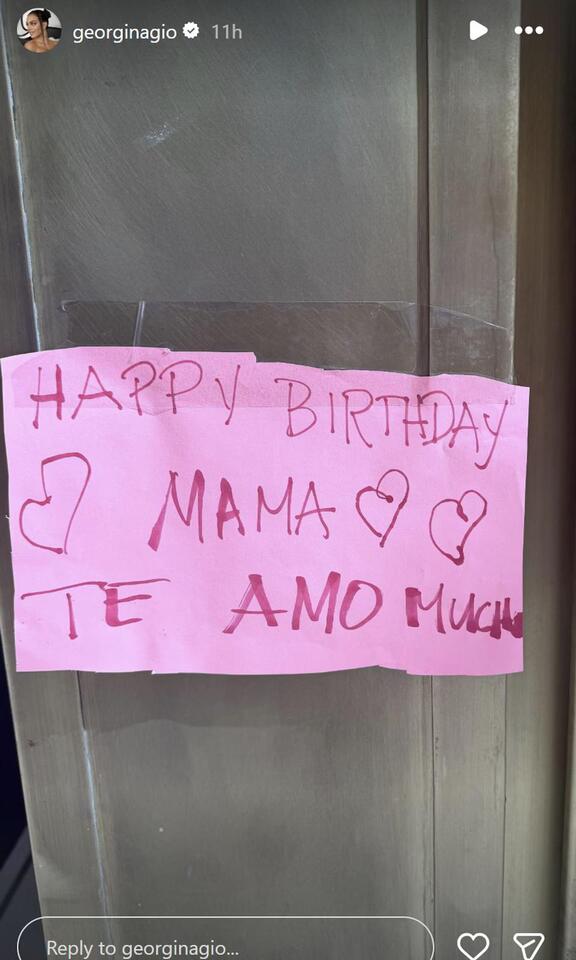 georginagio 11h
HAPPY BIRTHDAY
MAMA
TE AMO MUCHO
Reply to georginagio...